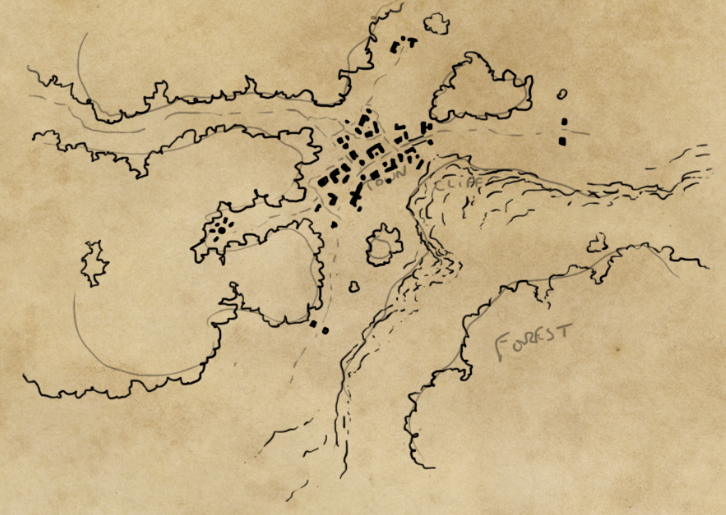 TOWN
CLIFF
FOREST